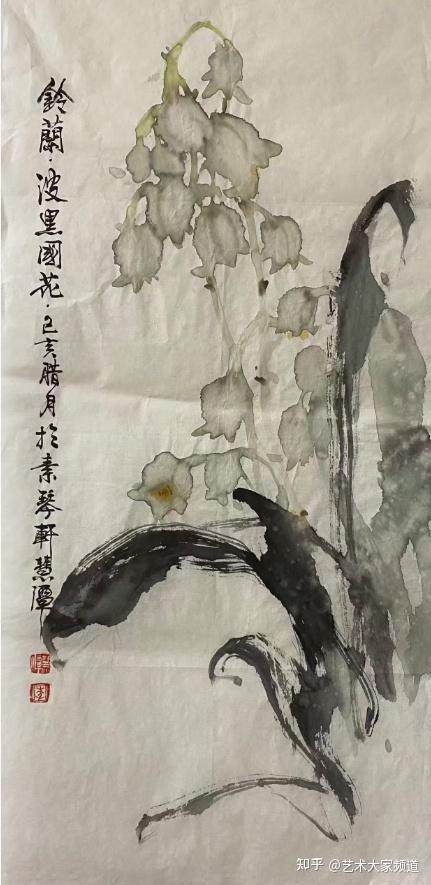 鈴蘭·波黑國花·己亥腊月於素琴軒慧潭
知乎 @艺术大家频道